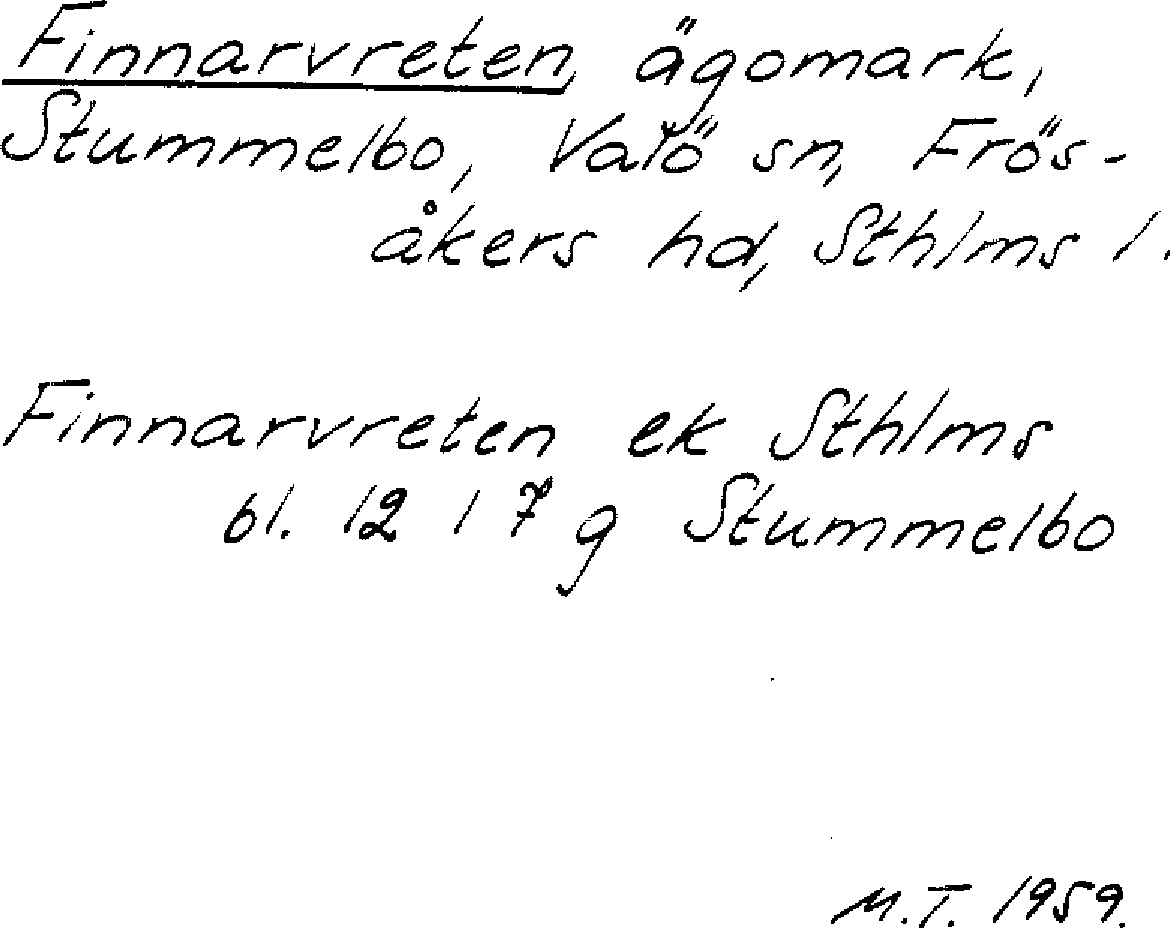 Finnarvreten, ägomark,
Stummelbo, Valö sn, Frös-
åkers hd, Sthlms l.
Finnarvreten ek Sthlms
bl. 12 I 7 g Stummelbo
M.T. 1959.